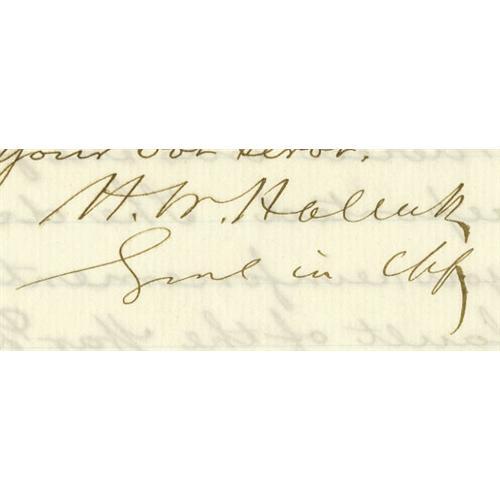 your obt servt.
H. W. Halleck
Genl in Chf